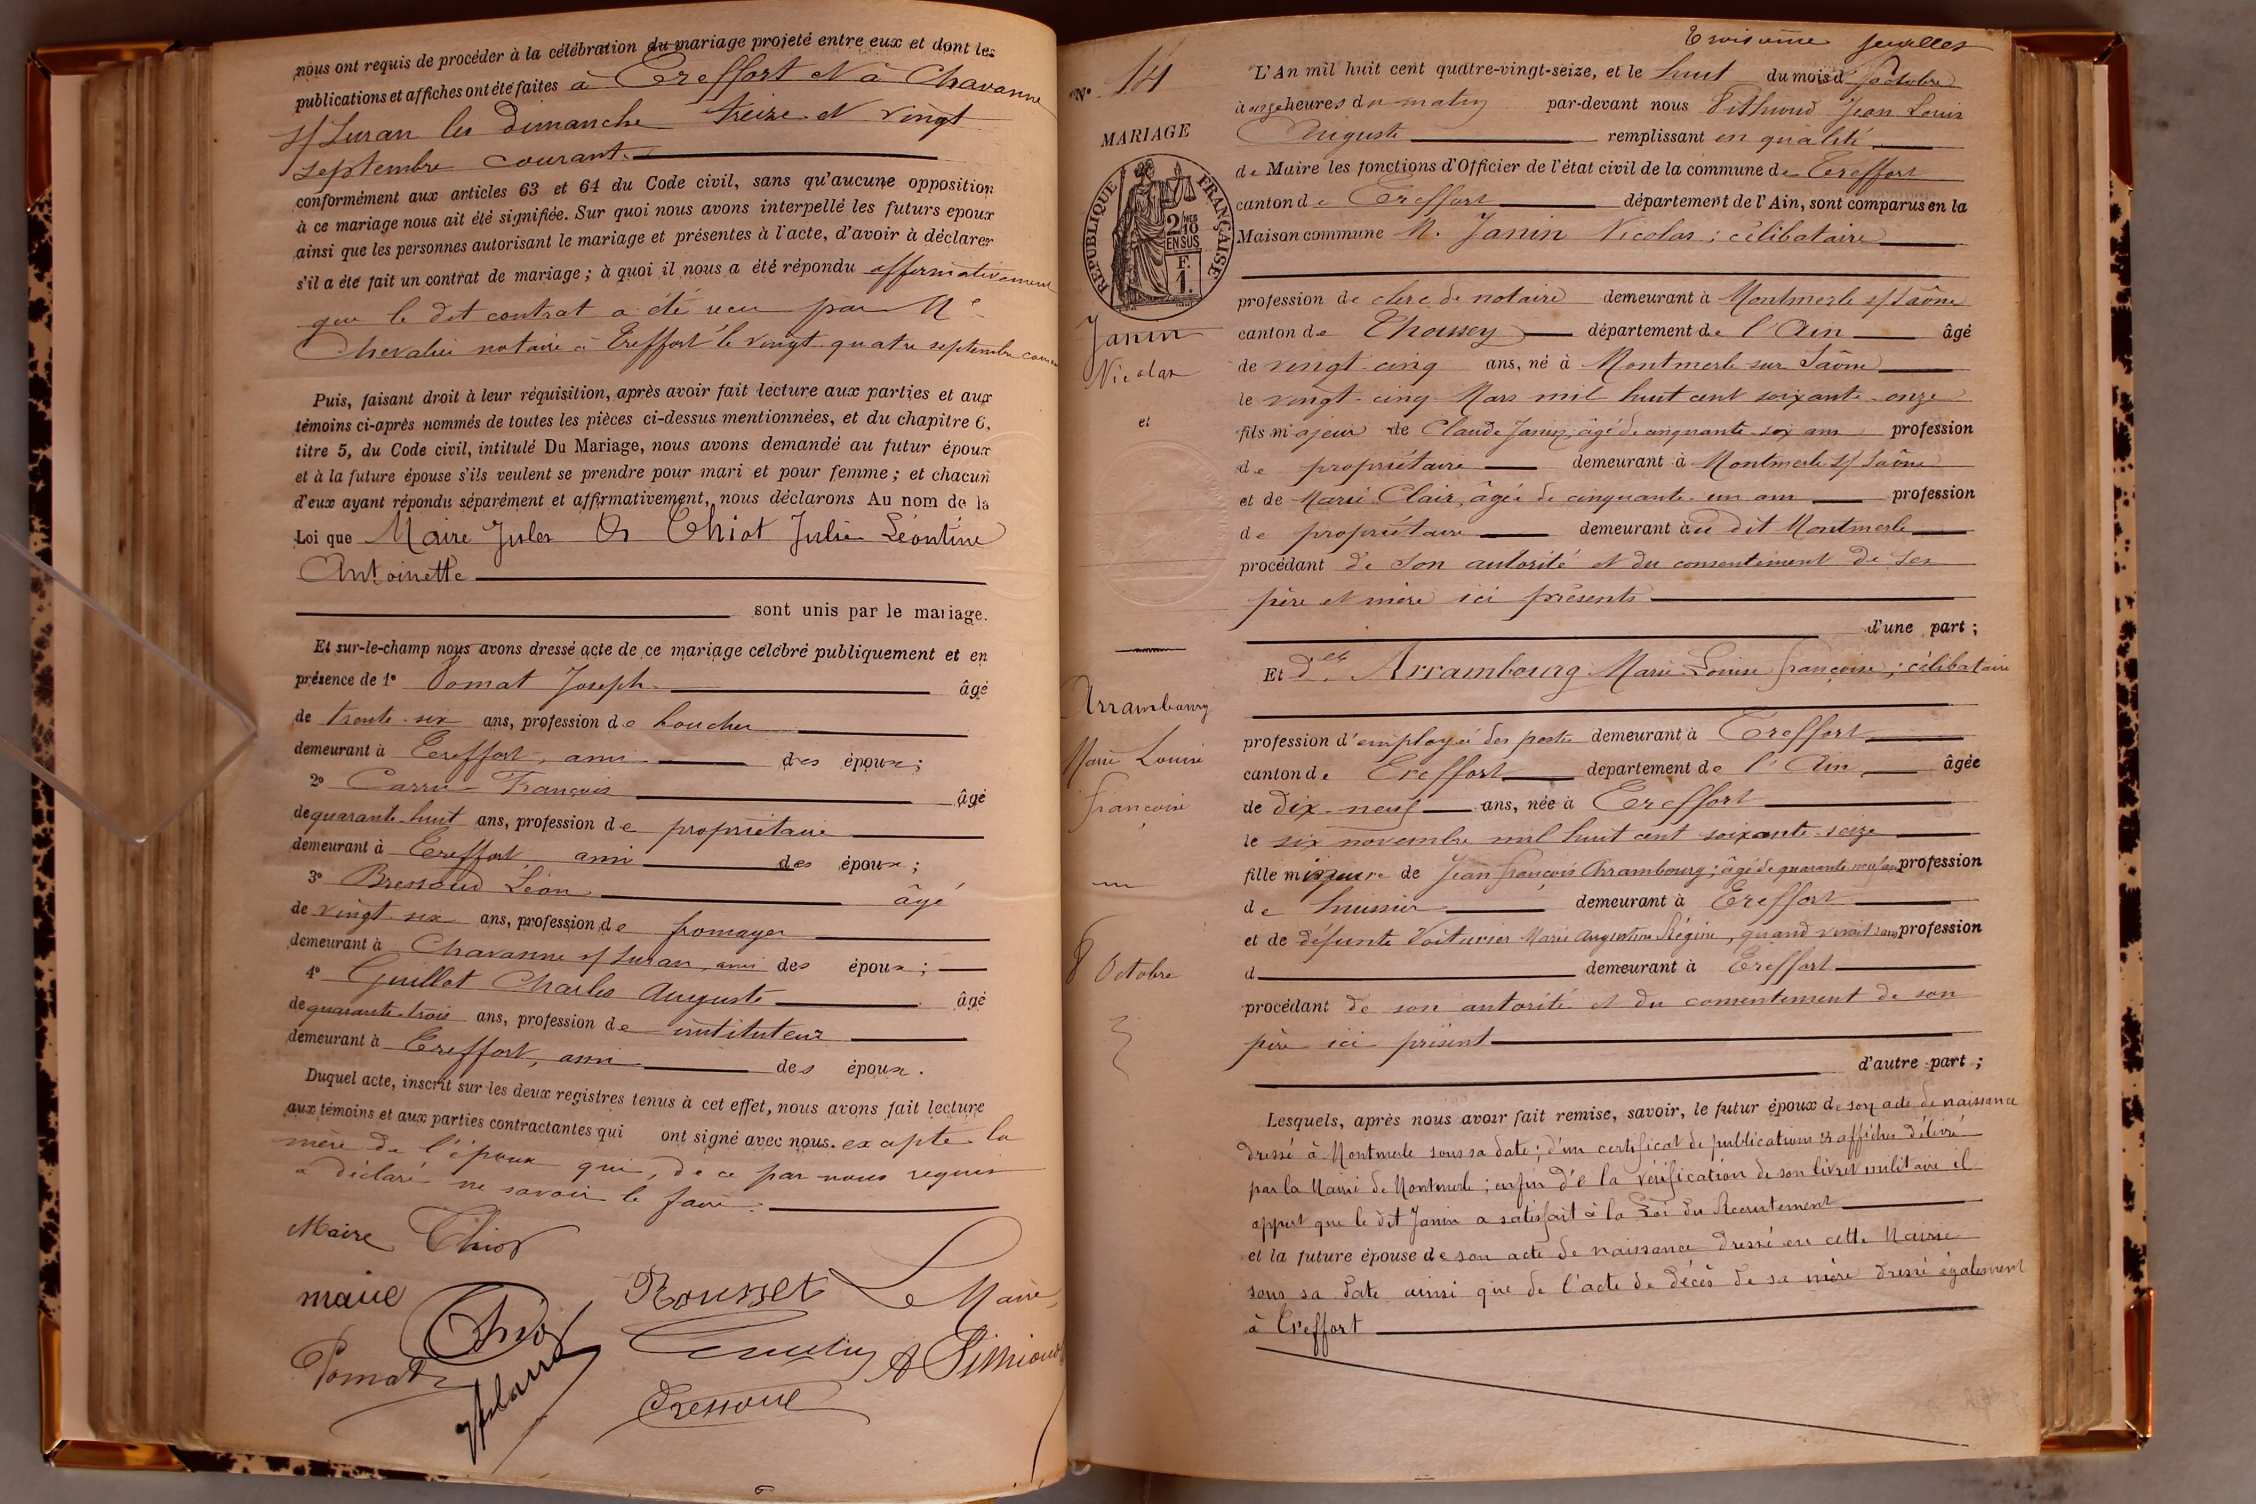 nous ont requis de procéder à la célébration du mariage projeté entre eux et dont les
publications et affiches ont été faites à Treffort et à Chavanne
s/ Suran les dimanche treize et vingt
septembre courant.
conformément aux articles 63 et 64 du Code civil, sans qu'aucune opposition
à ce mariage nous ait été signifiée. Sur quoi nous avons interpellé les futurs époux
ainsi que les personnes autorisant le mariage et présentes à l'acte, d'avoir à déclarer
s'il a été fait un contrat de mariage ; à quoi il nous a été répondu affirmativement
que le dit contrat a été reçu par Me
Chevalier notaire à Treffort le vingt-quatre septembre courant
Puis, faisant droit à leur réquisition, après avoir fait lecture aux parties et aux
témoins ci-après nommés de toutes les pièces ci-dessus mentionnées, et du chapitre 6,
titre 5, du Code civil, intitulé Du Mariage, nous avons demandé au futur époux
et à la future épouse s'ils veulent se prendre pour mari et pour femme ; et chacun
d'eux ayant répondu séparément et affirmativement, nous déclarons Au nom de la
Loi que Maire Jules et Thiot Julie Léontine
Antoinette
sont unis par le mariage.
Et sur-le-champ nous avons dressé acte de ce mariage célébré publiquement et en
présence de 1° Pomat Joseph âgé
de trente-six ans, profession de boucher
demeurant à Treffort, ami des époux ;
2° Carru François âgé
de quarante-huit ans, profession de propriétaire
demeurant à Treffort, ami des époux ;
3° Bressoud Léon âgé
de vingt-six ans, profession de fromager
demeurant à Chavanne s/ Suran, ami des époux ;
4° Guillot Charles Auguste âgé
de quarante-trois ans, profession de instituteur
demeurant à Treffort, ami des époux.
Duquel acte, inscrit sur les deux registres tenus à cet effet, nous avons fait lecture
aux témoins et aux parties contractantes qui ont signé avec nous. excepté la
mère de l'époux qui, de ce par nous requis
a déclaré ne savoir le faire.
Maire Thiot
maire Thiot Rousset Le Maire,
Pomat A Pithioud
Bressoud
Troisième feuillet
N° 14
MARIAGE
RÉPUBLIQUE FRANÇAISE
2/10 EN SUS
F.
1.
Janin
Nicolas
et
Arrambourg
Marie Louise
Françoise
8 Octobre
L'An mil huit cent quatre-vingt-seize, et le huit du mois d'octobre
à onze heures du matin par-devant nous Pithioud Jean Louis
Auguste remplissant en qualité
de Maire les fonctions d'Officier de l'état civil de la commune de Treffort
canton de Treffort département de l'Ain, sont comparus en la
Maison commune M. Janin Nicolas ; célibataire
profession de clerc de notaire demeurant à Montmerle s/ Saône
canton de Thoissey département de l'Ain âgé
de vingt-cinq ans, né à Montmerle sur Saône
le vingt-cinq Mars mil huit cent soixante-onze
fils majeur de Claude Janin, âgé de cinquante-six ans profession
de propriétaire demeurant à Montmerle s/ Saône
et de Marie Clair, âgée de cinquante-un ans profession
de propriétaire demeurant au dit Montmerle
procédant de son autorité et du consentement de ses
père et mère ici présents
d'une part ;
Et Delle Arrambourg Marie Louise Françoise ; célibataire
profession d'employée des postes demeurant à Treffort
canton de Treffort département de l'Ain âgée
de dix-neuf ans, née à Treffort
le six novembre mil huit cent soixante-seize
fille mineure de Jean François Arrambourg ; âgé de quarante-neuf ans profession
de huissier demeurant à Treffort
et de défunte Voiturier Marie Augustine Régine, quand vivait sans profession
d demeurant à Treffort
procédant de son autorité et du consentement de son
père ici présent
d'autre part ;
Lesquels, après nous avoir fait remise, savoir, le futur époux de son acte de naissance
dressé à Montmerle sous sa date ; d'un certificat de publications et affiches délivré
par la Mairie de Montmerle ; enfin de la vérification de son livret militaire il
appert que le dit Janin a satisfait à la Loi du Recrutement
et la future épouse de son acte de naissance dressé en cette Mairie
sous sa date ainsi que de l'acte de décès de sa mère dressé également
à Treffort